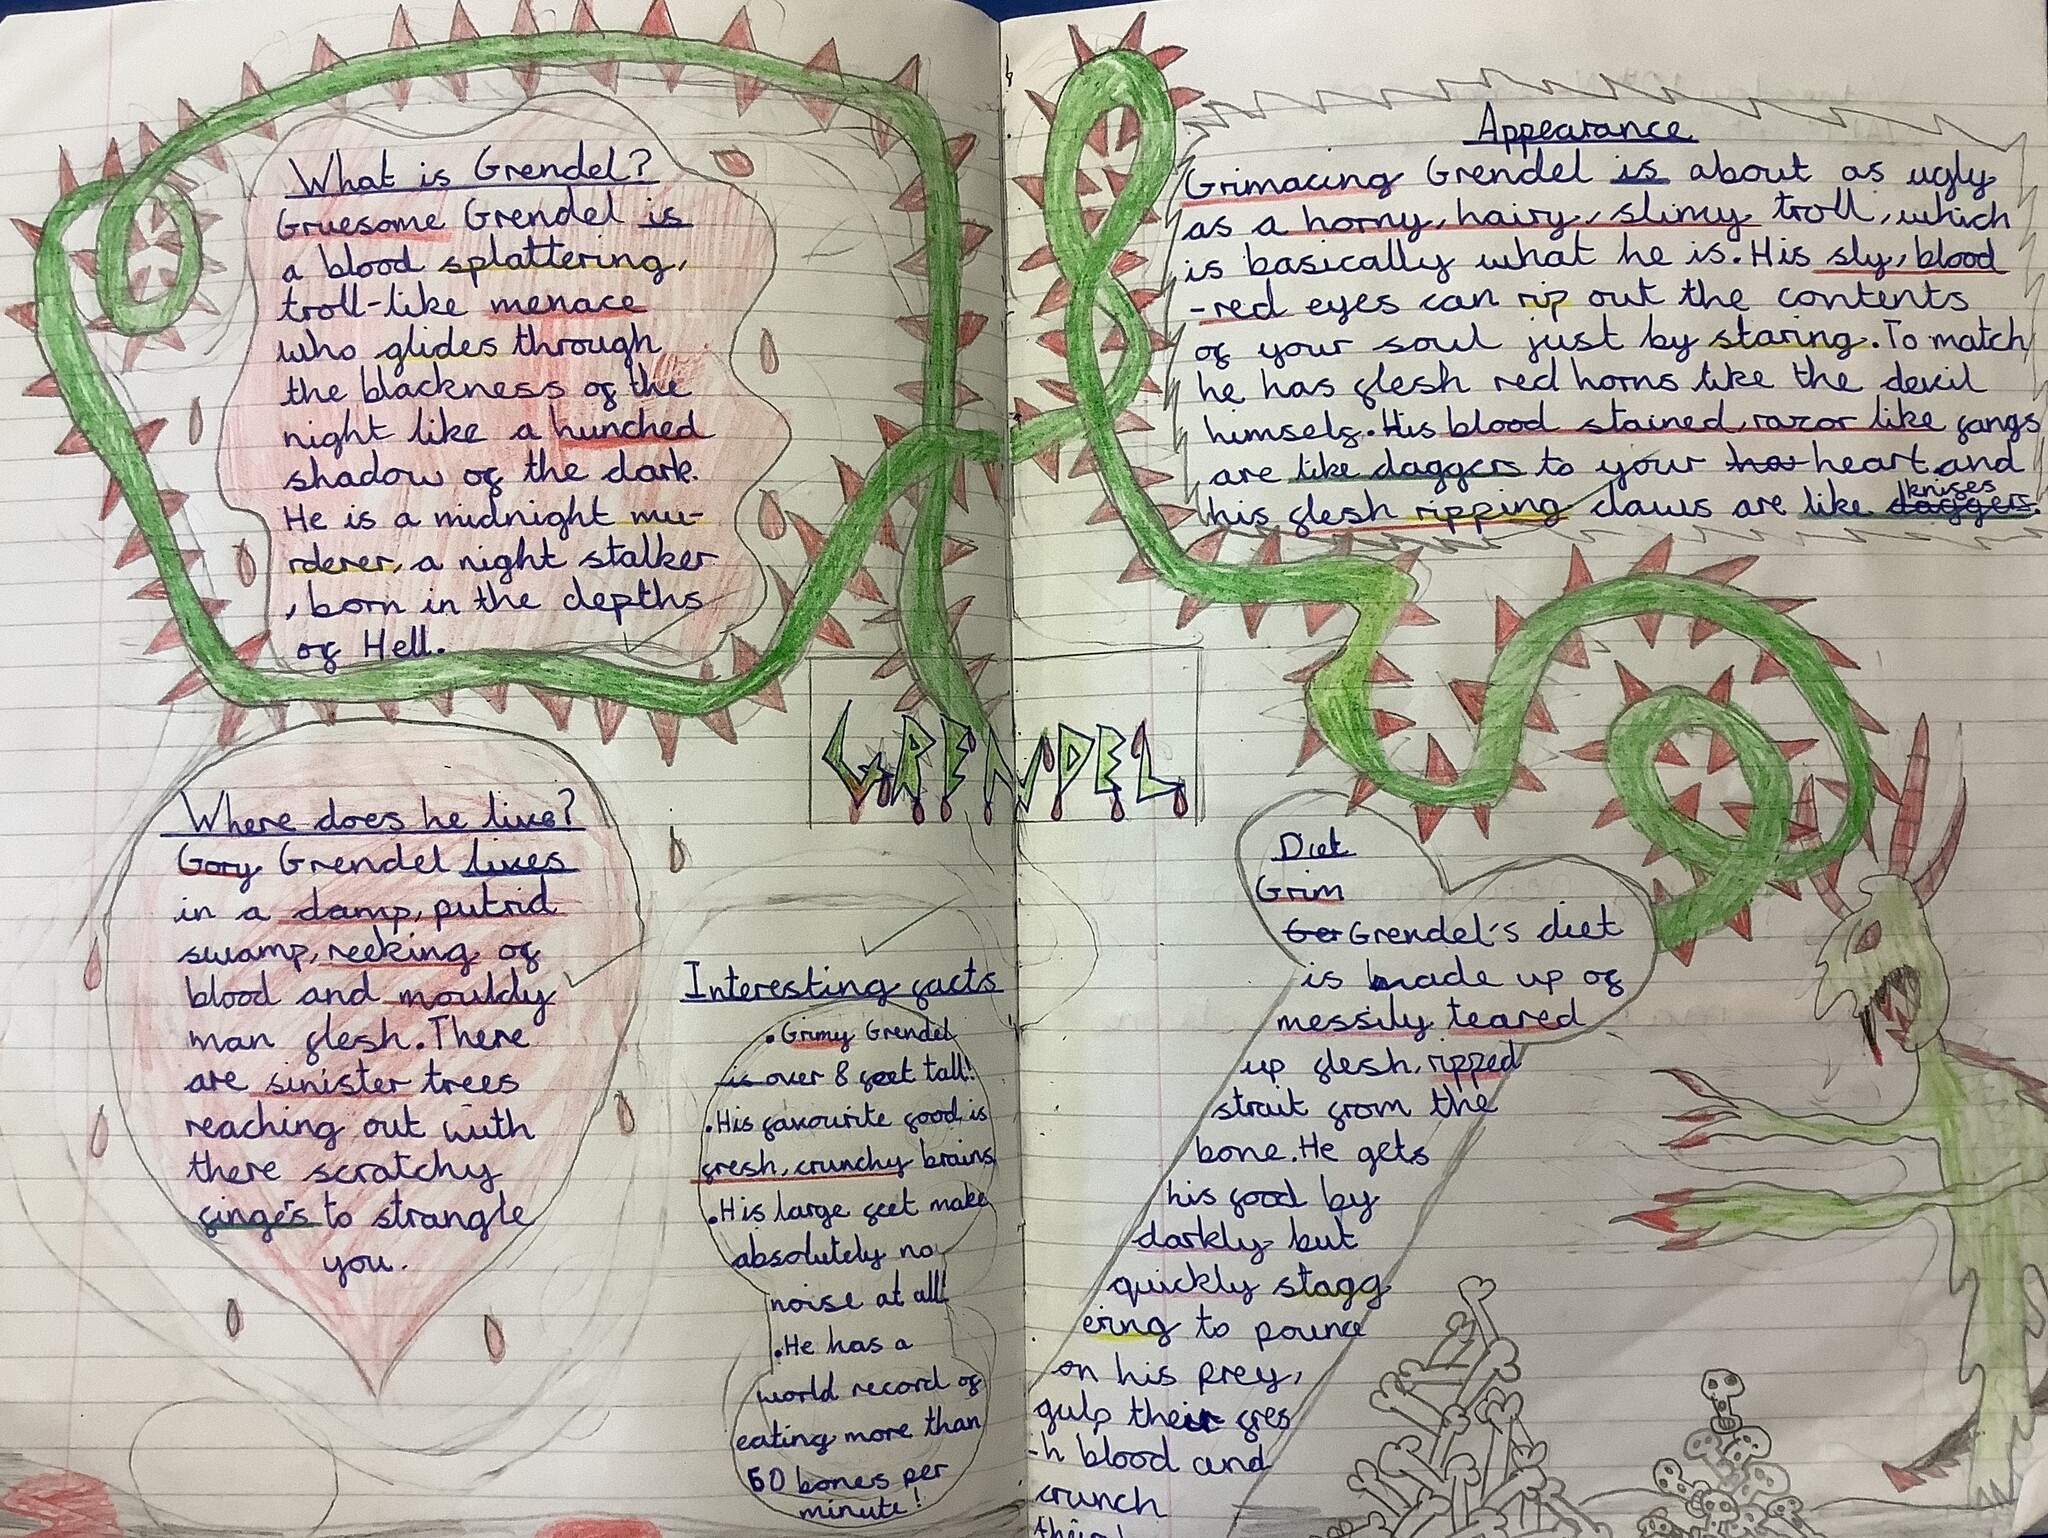 What is Grendel?
Gruesome Grendel is
a blood splattering,
troll-like menace
who glides through
the blackness of the
night like a hunched
shadow of the dark.
He is a midnight mu-
rderer, a night stalker
, born in the depths
of Hell.
Where does he live?
Gory Grendel lives
in a damp, putrid
swamp, reeking of
blood and mouldy
man flesh. There
are sinister trees
reaching out with
there scratchy
finges to strangle
you.
GRENDEL
Interesting facts
• Grimy Grendel
is over 8 feet tall!
• His favourite food is
fresh, crunchy brains
• His large feet make
absolutely no
noise at all!
• He has a
world record of
eating more than
60 bones per
minute!
Appearance
Grimacing Grendel is about as ugly
as a horny, hairy, slimy troll, which
is basically what he is. His sly, blood
-red eyes can rip out the contents
of your soul just by staring. To match
he has flesh red horns like the devil
himself. His blood stained, razor like fangs
are like daggers to your heart and
his flesh ripping claws are like daggers knifes.
Diet
Grim
Grendel's diet
is made up of
messily teared
up flesh, ripped
strait from the
bone. He gets
his food by
darkly but
quickly stagg
ering to pounce
on his prey,
gulp their fres
-h blood and
crunch